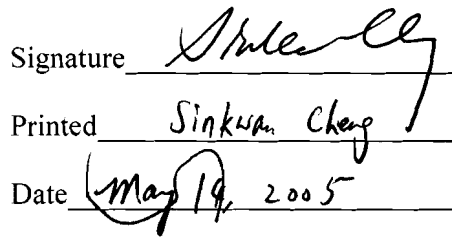 Signature
Printed Sinkwan Cheng
Date May 19, 2005